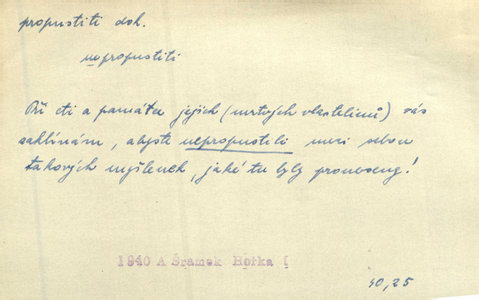 propustiti dok.
nepropustiti
Při cti a památce jejich (mrtvých vlastenců) vás
zaklínám, abyste nepropustili mezi sebou
takových myšlenek, jaké tu byly proneseny!
1940 A Šramek Hořka (
40, 25